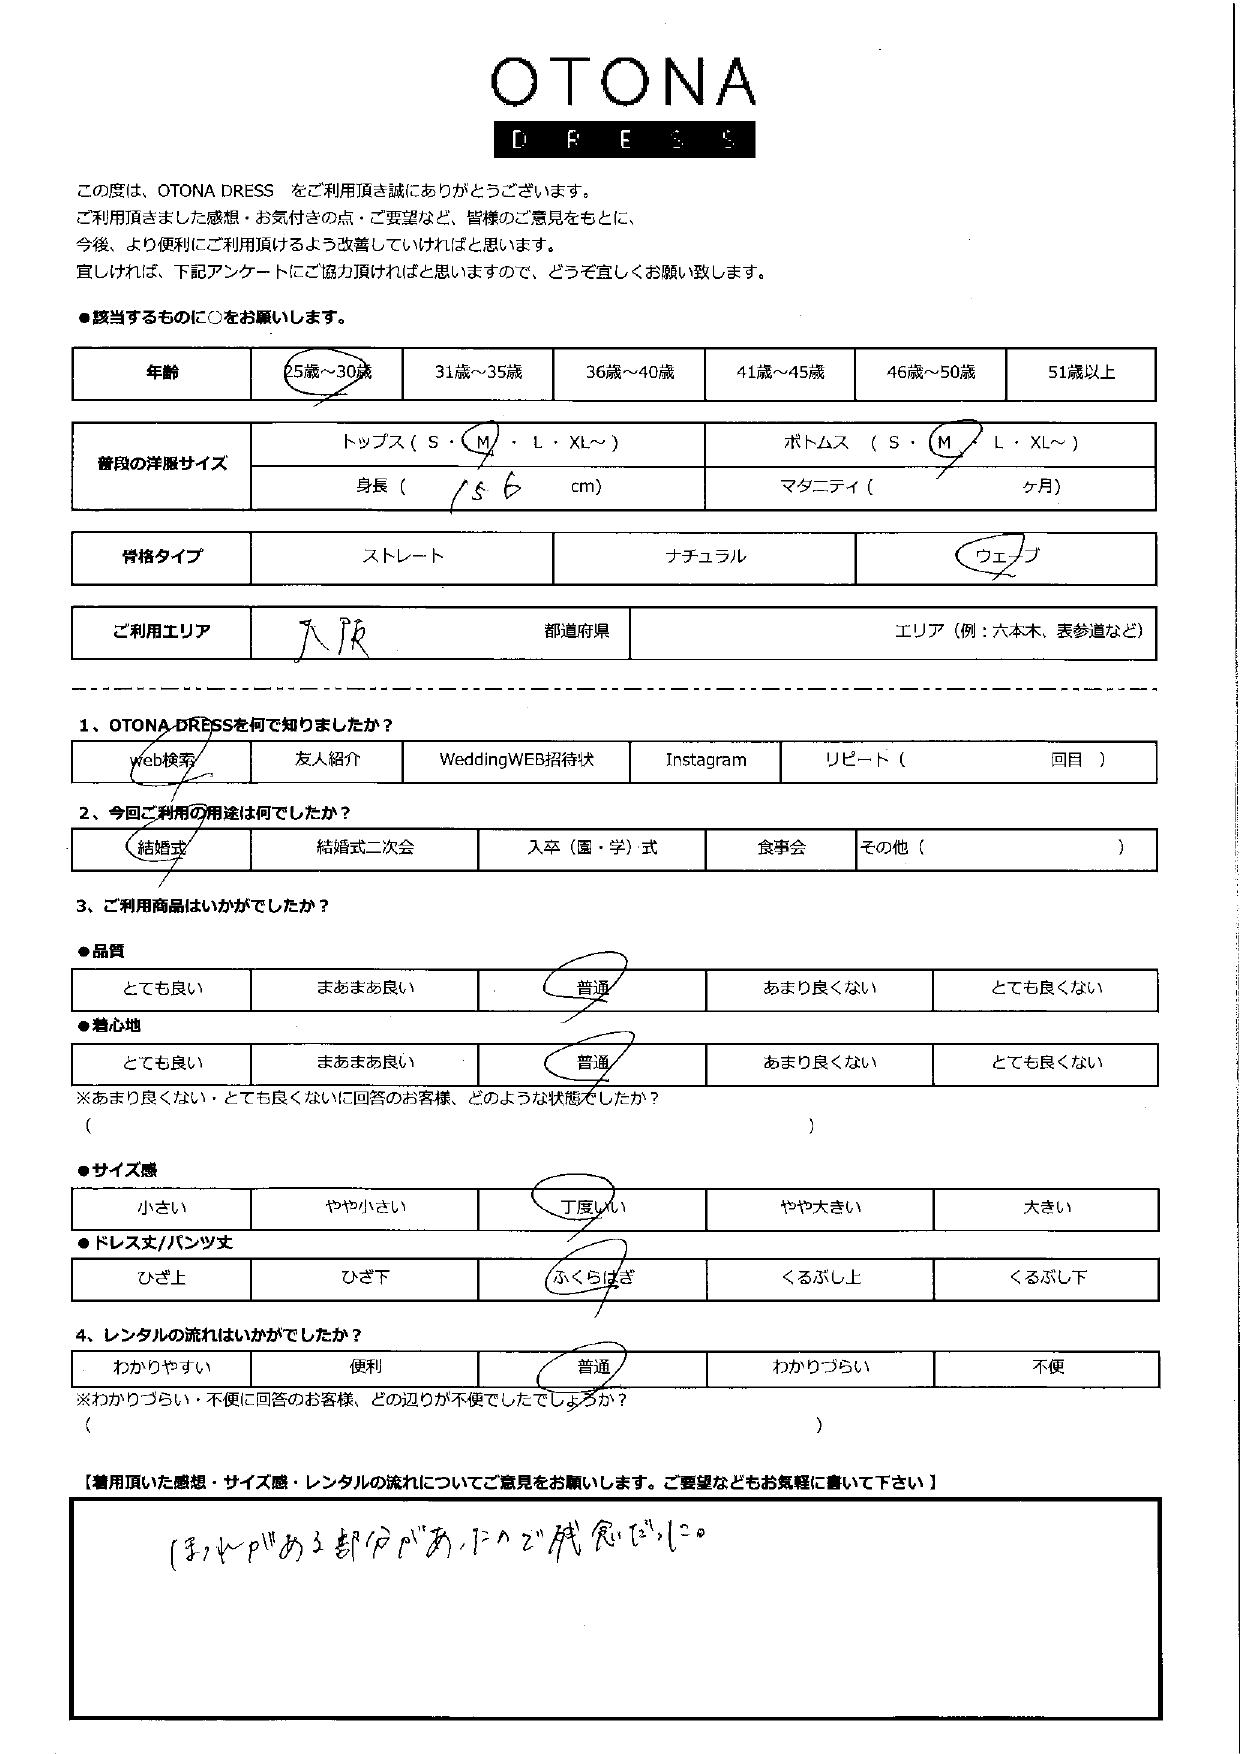 OTONA
DRESS
この度は、OTONA DRESS をご利用頂き誠にありがとうございます。
ご利用頂きました感想・お気付きの点・ご要望など、皆様のご意見をもとに、
今後、より便利にご利用頂けるよう改善していければと思います。
宜しければ、下記アンケートにご協力頂ければと思いますので、どうぞ宜しくお願い致します。
●該当するものに○をお願いします。
年齢 25歳～30歳 31歳～35歳 36歳～40歳 41歳～45歳 46歳～50歳 51歳以上
普段の洋服サイズ トップス ( S ・ M ・ L ・ XL～ ) ボトムス ( S ・ M ・ L ・ XL～ )
身長 ( 156 cm) マタニティ ( ケ月)
骨格タイプ ストレート ナチュラル ウェーブ
ご利用エリア 大阪 都道府県 エリア（例：六本木、表参道など）
1、OTONA DRESSを何で知りましたか？
web検索 友人紹介 WeddingWEB招待状 Instagram リピート（ 回目 ）
2、今回ご利用の用途は何でしたか？
結婚式 結婚式二次会 入卒（園・学）式 食事会 その他（ ）
3、ご利用商品はいかがでしたか？
●品質
とても良い まあまあ良い 普通 あまり良くない とても良くない
●着心地
とても良い まあまあ良い 普通 あまり良くない とても良くない
※あまり良くない・とても良くないに回答のお客様、どのような状態でしたか？
( )
●サイズ感
小さい やや小さい 丁度いい やや大きい 大きい
●ドレス丈/パンツ丈
ひざ上 ひざ下 ふくらはぎ くるぶし上 くるぶし下
4、レンタルの流れはいかがでしたか？
わかりやすい 便利 普通 わかりづらい 不便
※わかりづらい・不便に回答のお客様、どの辺りが不便でしたでしょうか？
( )
【着用頂いた感想・サイズ感・レンタルの流れについてご意見をお願いします。ご要望などもお気軽に書いて下さい】
ほつれがある部分があったので残念だった。